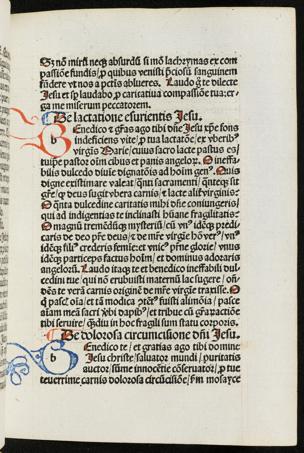 Sz nō mirū necq̃ absurdū si mō lachrymas ex com
passiōne fundis / p quibus venisti p̃ciosū sanguinem
fūdere vt nos a pctis ablueres. Laudo q̃ te dilecte
Jesu et sp laudabo, p caritatiua compassiōe tua: er-
ga me miserum peccatorem.
De lactatione esurientis Jesu.
b Enedico & gr̃as ago tibi dñe Jesu xp̃e fons
indeficiens vite / p tua lactatōe / ex vberib9
virgīs Marie / cuius sacro lacte pastus es /
tu ipe pastor oīm cibus et panis angeloꝝ. O ineffa-
bilis dulcedo diuīe dignatōis ad hoīm gen9. Quis
digne existimare valeat / quīti sacramenti / quāteq̃ sit
gr̃e / q̃ deus sugit vbera carnis / & lacte alit̃ virgineo.
O quīta dulcedine caritatis mihi dñe coniungeris /
qui ad indigentias te inclinasti hūane fragilitatis:
O magnū tremēdūq̃ mysteriū / cū vn9 idēq̃ p̃dicas
caris de deo pr̃e deus / & de mr̃e virgīe hō ver9 / vn9
idēq̃ fili9 crederis femīe: et vnic9 p̃me glorie / vnus
idēq̃ particeps factus hoīm / et dominus adoraris
angeloꝝ. Laudo itaq̃ te et benedico ineffabilī dul-
cedini tue / qui nō erubuisti maternū lac sugere / on̄-
dēs te verā carnis origine de mr̃e virgīe traxisse.
q̃ pasce oīa / et tā modica p̃tez fuisti alimōia / pasce
aīam meā sacri xb̄i dapib9 / et tribue cū gr̃aꝝ actiōe
tibi seruire / q̃diu in hoc fragili sum statu corporis.
De dolorosa circumcisione dñi Jesu.
b Enedico te / et gratias ago tibi domine
Jesu christe / saluator mundi / puritatis
auctor / sūme innocētie cōseruator / p tue
teuerrime carnis dolorosa circūcisiōe / scđm mosayce